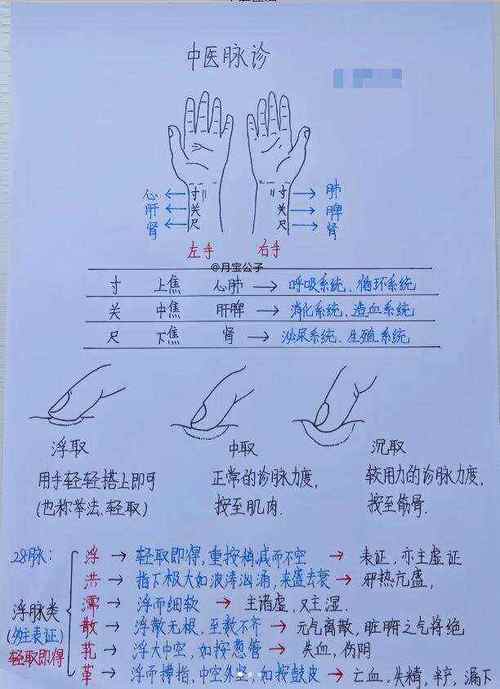 中医脉诊
心 寸 寸 肺
肝 关 关 脾
肾 尺 尺 肾
左手 右手
@月宝公子
寸 上焦 心肺 → 呼吸系统、循环系统
关 中焦 肝脾 → 消化系统、造血系统
尺 下焦 肾 → 泌尿系统、生殖系统
浮取 中取 沉取
用手轻轻搭上即可 正常的诊脉力度, 较用力的诊脉力度,
(也称举法、轻取) 按至肌肉. 按至筋骨.
28脉:
浮脉类
(多主表证)
轻取即得
浮 → 轻取即得,重按稍减而不空 → 表证,亦主虚证
洪 → 指下极大如波涛汹涌,来盛去衰 → 邪热亢盛,
濡 → 浮而细软 → 主诸虚,又主湿.
散 → 浮散无根,至数不齐 → 元气离散,脏腑之气将绝
芤 → 浮大中空,如按葱管 → 失血,伤阴
革 → 浮而搏指,中空外坚,如按鼓皮 → 亡血、失精、半产、漏下